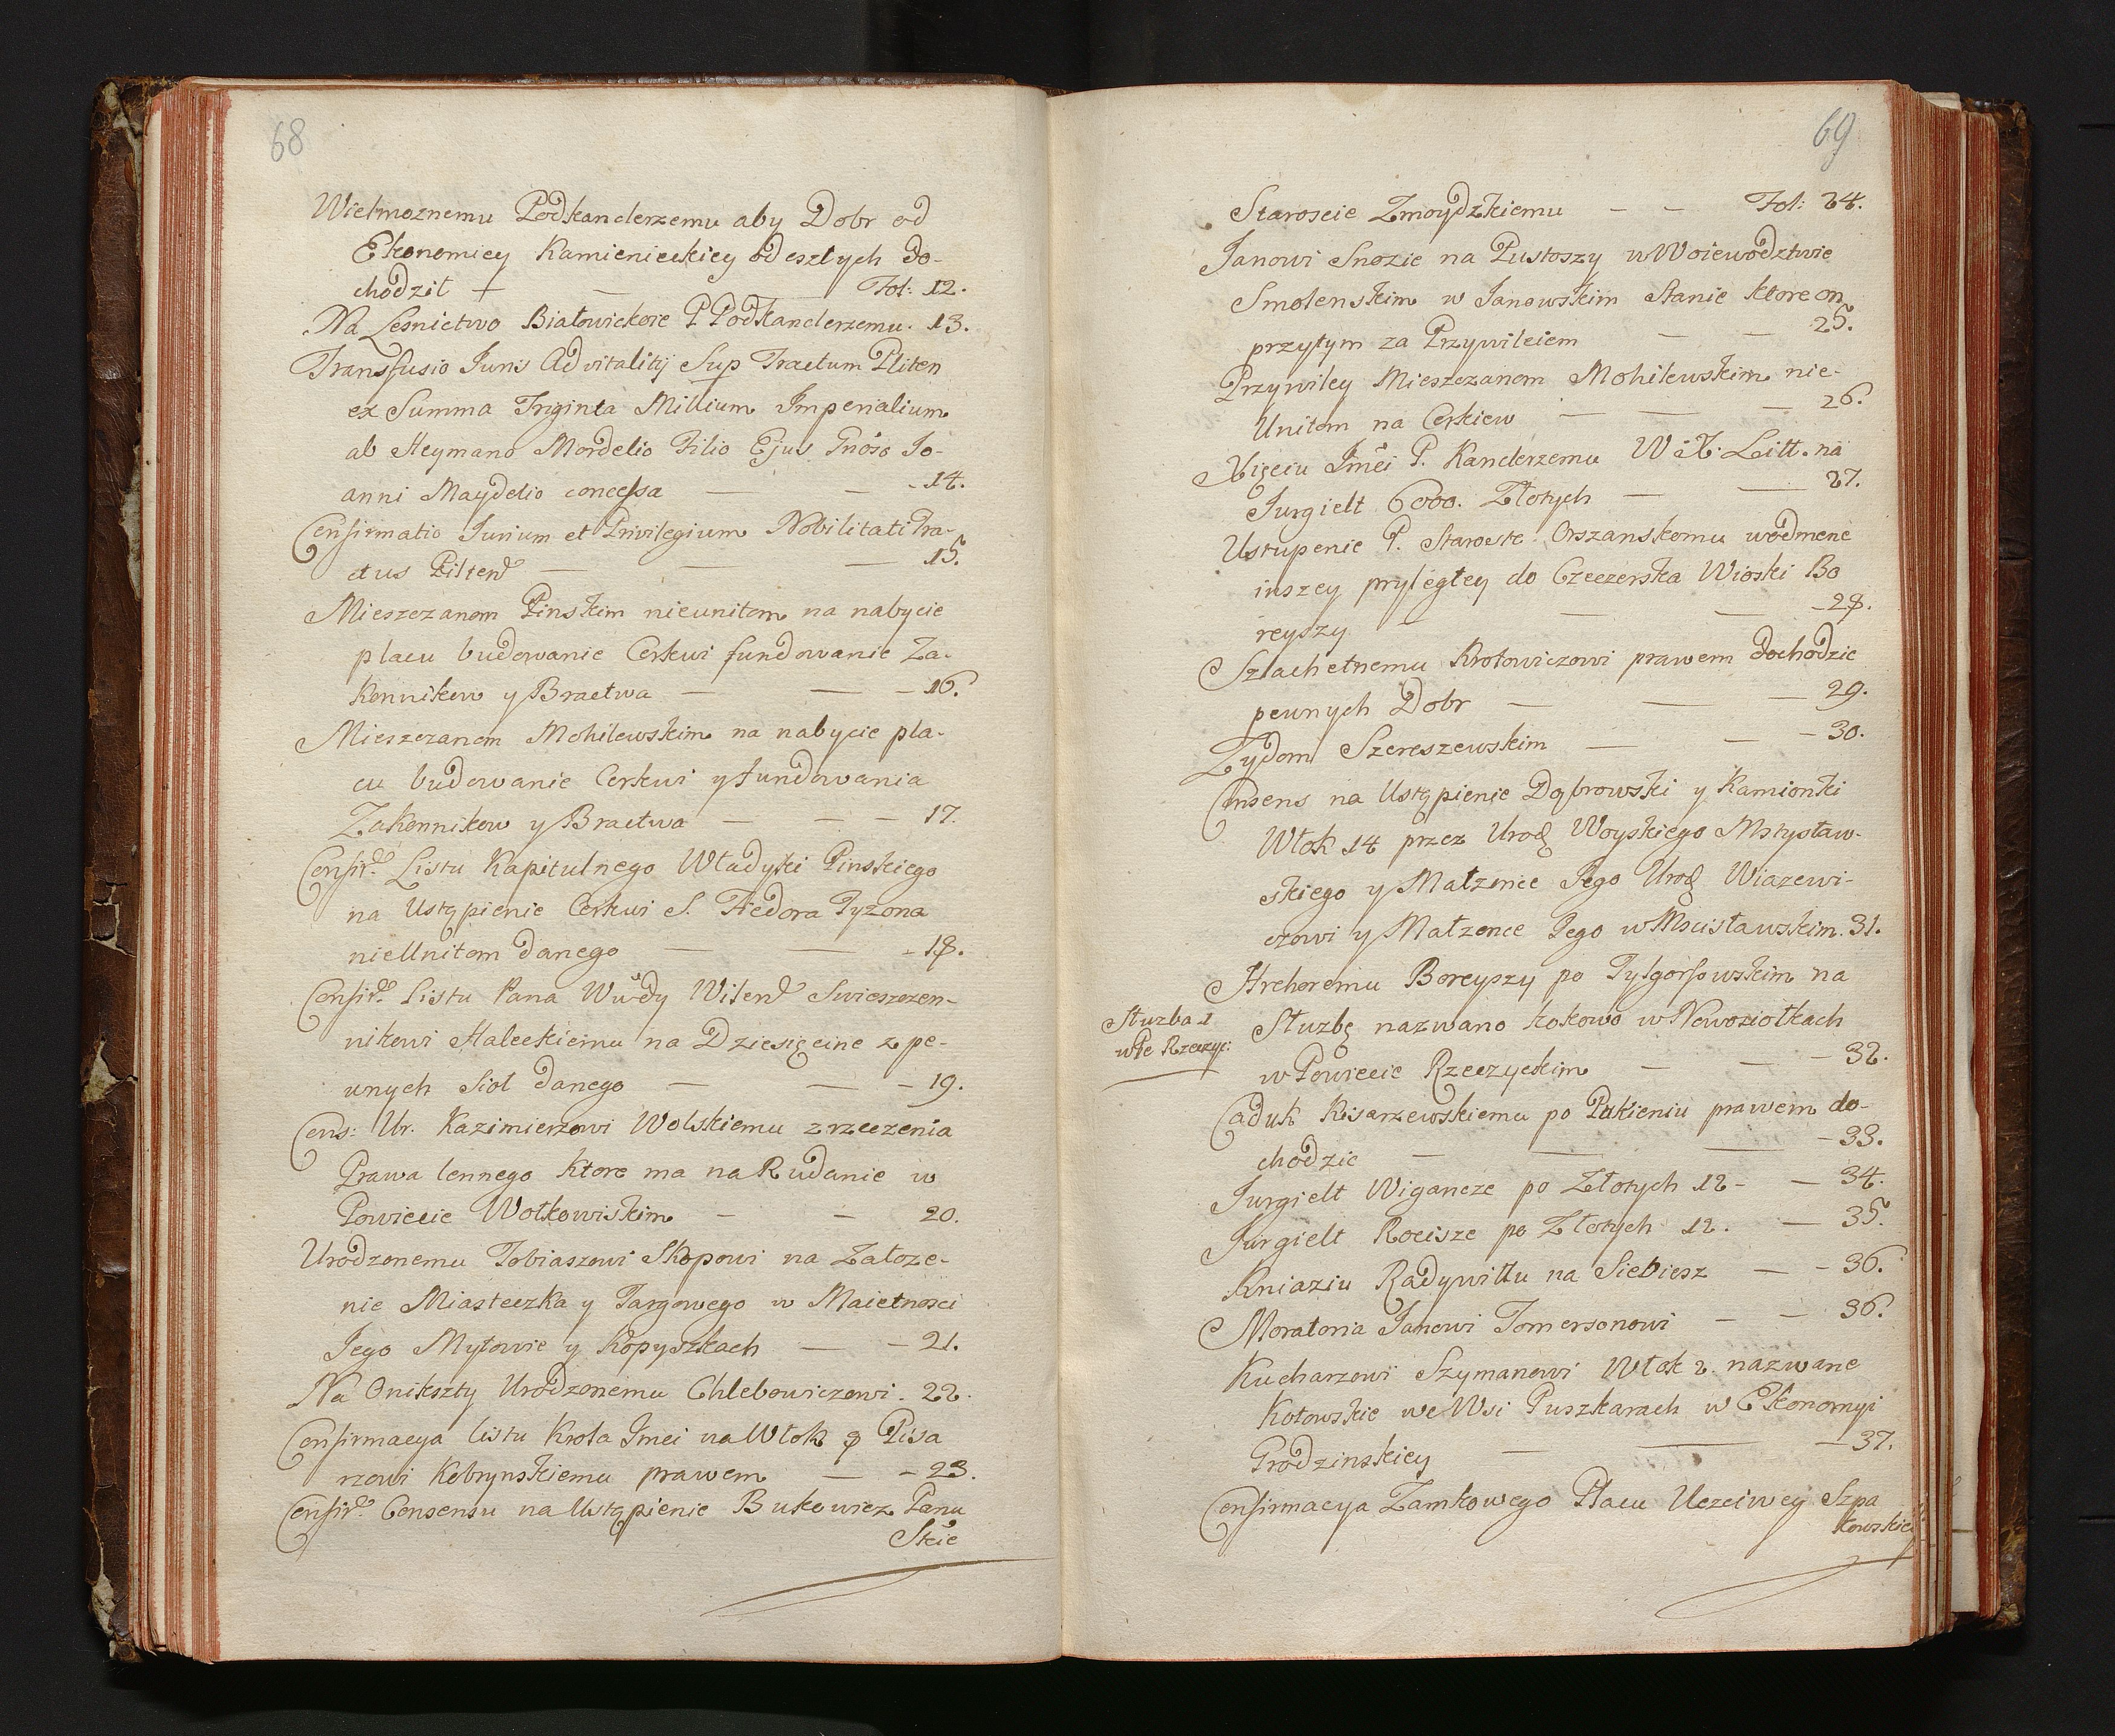 68
Wielmoznemu Podkanclerzemu aby Dobr od
Ekonomiey Kamienieckiey odeszłych do-
chodził — — Fol: 12.
Na Lesnictwo Białowickoie P Podkanclerzemu. 13.
Transfusio Juris Advitalitij Sup Tractum Pliten
ex Summa Triginta Millium Imperialium
ab Heymano Mordelio Filio Ejus Gnoso Jo-
anni Maydelio concessa — — - 14.
Confirmatio Jurium et Privilegium Nobilitati Tra-
ctus Pilten — — — 15.
Mieszczanom Pinskim nieunitom na nabycie
placu budowanie Cerkwi fundowanie Za-
konnikow y Bractwa — — - 16.
Mieszczanom Mohilewskim na nabycie pla-
cu budowanie Cerkwi y fundowania
Zakonnikow y Bractwa — — — 17.
Confir. Listu Kapitulnego Władyki Pinskiego
na Ustąpienie Cerkwi S. Fiedora Tyzona
nieUnitom danego — — - 18.
Confir. Listu Pana Wwdy Wilen Swieszczen-
nikowi Haleckiemu na Dziesięcine z pe-
wnych Siol danego — — - 19.
Cons: Ur. Kazimierzowi Wolskiemu zrzeczenia
Prawa lennego Ktore ma na Rudanie w
Powiecie Wołkowiskim — — 20.
Urodzonemu Tobiaszowi Skopowi na Załoze-
nie Miasteczka y Targowego w Maietnosci
Jego Mytowie y Kopyszkach — - 21.
Na Onikszty Urodzonemu Chlebowiczowi - 22.
Confirmacya listu Krola Jmci na Włok 8 Pisa
rzowi Kobrynskiemu prawem — - 23.
Confir. Consensu na Ustąpienie Bukowicz Panu
Skie
69
Staroscie Zmoydzkiemu — — Fol: 24.
Janowi Snozie na Pustoszy w Woiewodztwie
Smolenskim w Janowskim Stanie ktore on
przytym za Przywileiem — — 25.
Przywiley Mieszczanom Mohilewskim nie-
Unitom na Cerkiew — — — 26.
Xięciu Jmci P. Kanclerzemu W. X. Litt. na
Jurgielt 6000. Złotych — — 27.
Ustupenie P. Staroste Orszanskomu wodmene
inszey pryległey do Czeczerska Wioski Bo
reyszy — — — - 28.
Szlachetnemu Krotowiczowi prawem dochodzic
pewnych Dobr — — — 29.
Zydom Szereszewskim — — - 30.
Consens na Ustąpienie Dąbrowski y Kamionki
Włok 14 przez Urod Woyskiego Mstysław-
skiego y Małzonce Jego Urod Wiazewi-
czowi y Małzonce Jego w Mscisławskim. 31.
Hrehoremu Boreyszy po Tylgorsowskim na
Słuzba 1
w Pe Rzeczyc:
Słuzbę nazwano Kokowo w Nowosiołkach
w Powiecie Rzeczyckim — — - 32.
Caduk Kisarzewskiemu po Pakieniu prawem do-
chodzic — — — - 33.
Jurgielt Wigancze po Złotych 12 - — 34.
Jurgielt Rocisze po Złotych 12. — 35.
Kniaziu Radywiłłu na Siebiesz — - 36.
Moratoria Janowi Tomersonowi — — 36.
Kucharzowi Szymanowi Włok 2. nazwane
Kotowskie we Wsi Puszkarach w Ekonomyi
Grodzinskiey — — — 37.
Confirmacya Zamkowego Placu Uczciwey Szpa
kowskiey